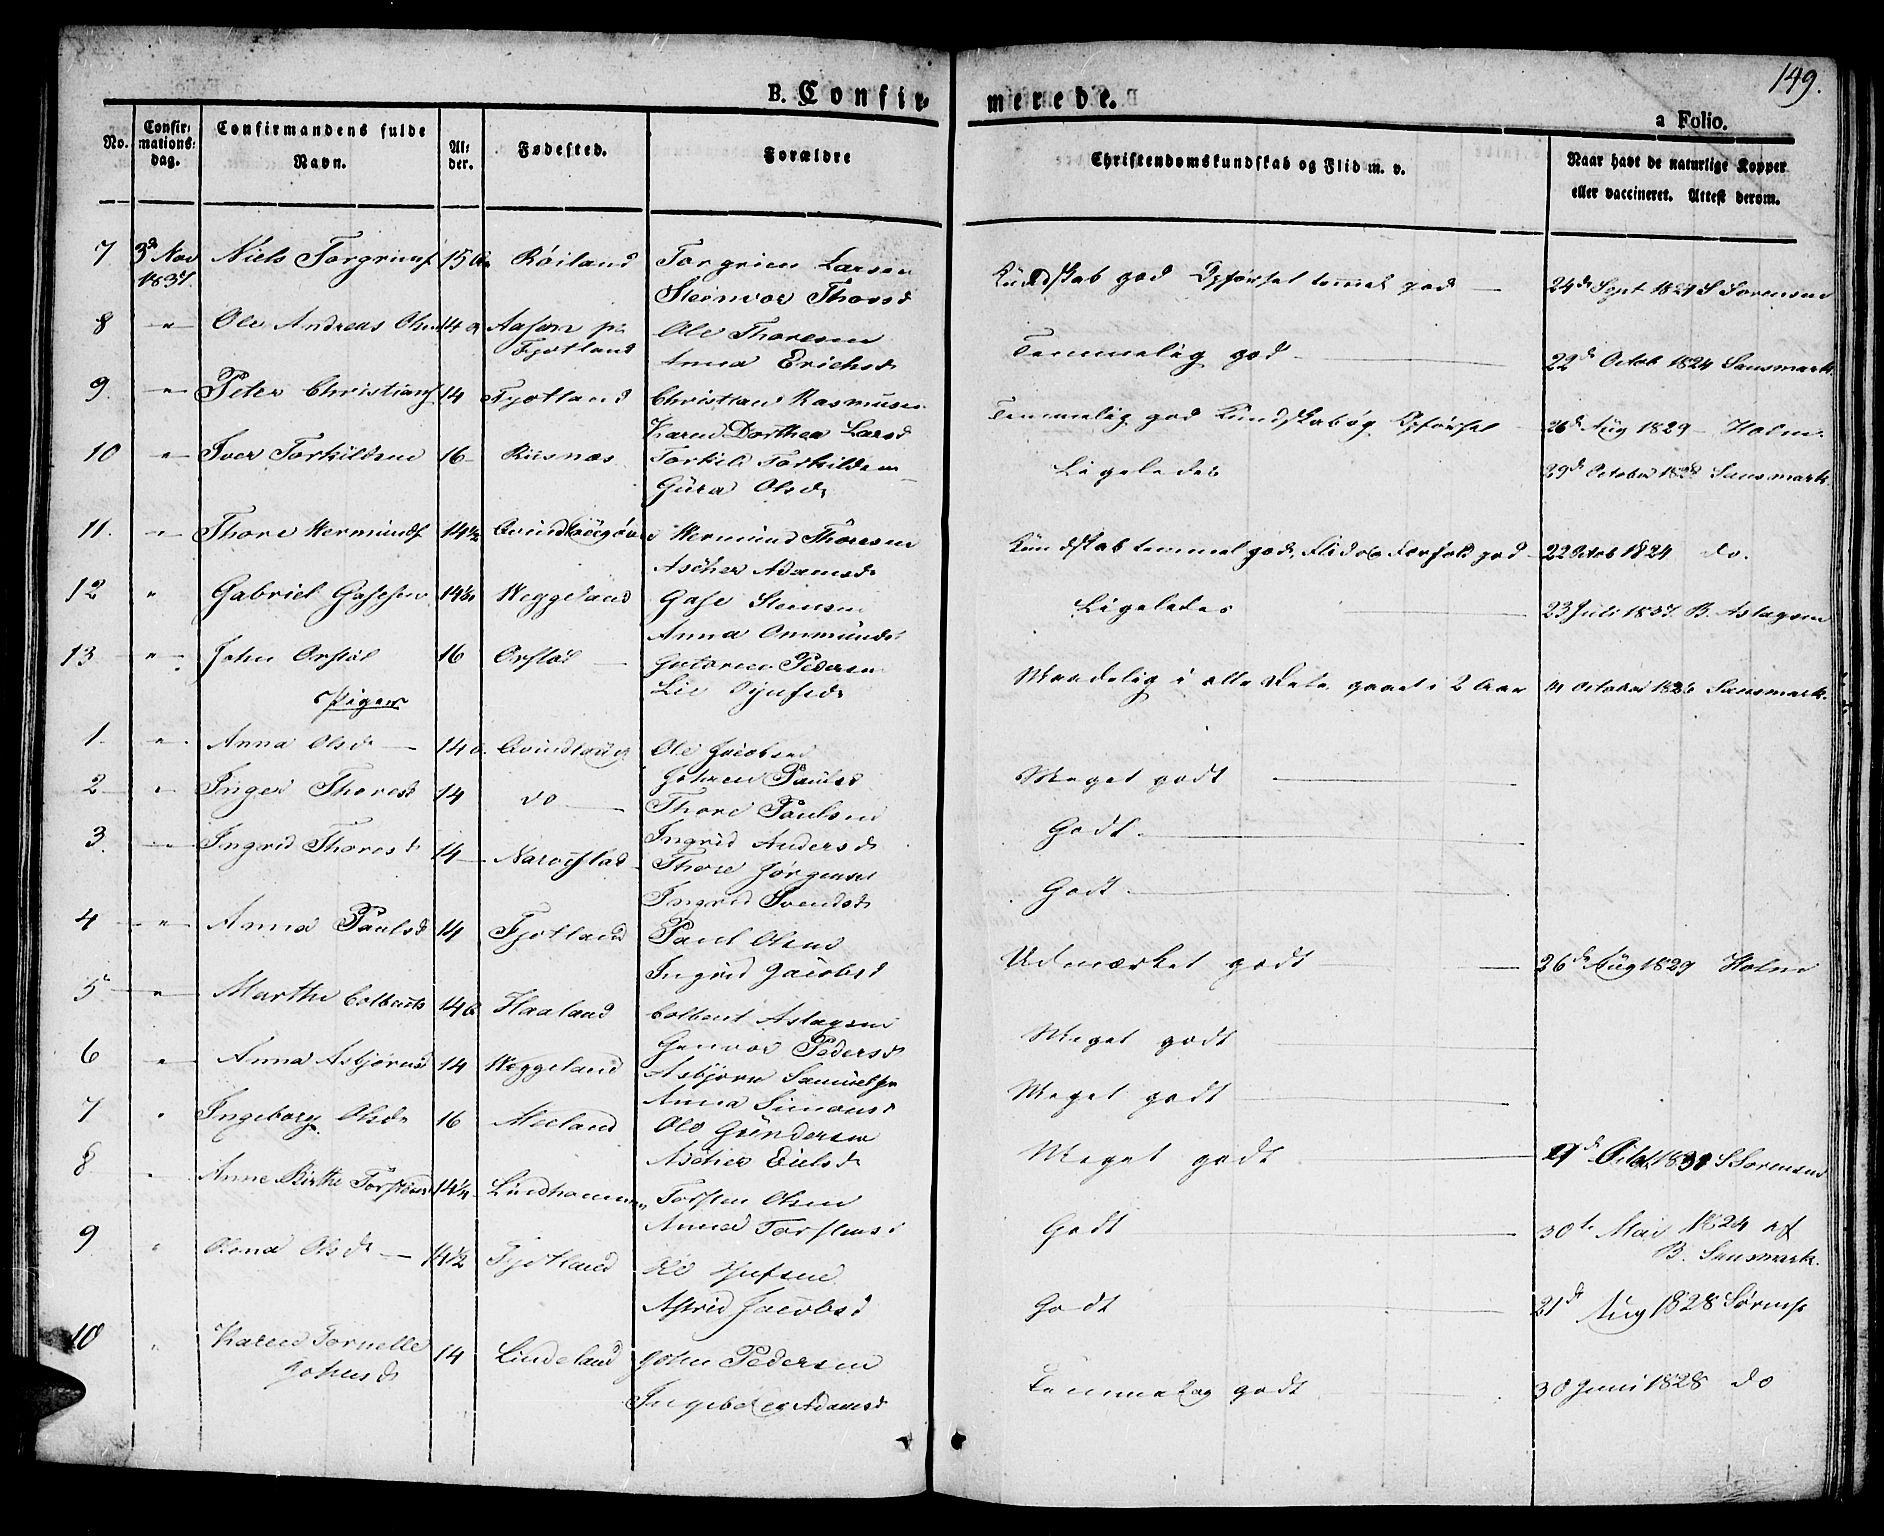 149.
B. Confir- merede.
a Folio.
No.
Confir-
mations-
dag.
Confirmandens fulde
Navn.
Al-
der.
Fødested.
Forældre
Christendomskundskab og Flid m. v.
Naar havt de naturlige Kopper
eller vaccineret. Attest derom.
7 3d Nov Niels Torgrims 15 Røiland Torgrim Larsen
1837. Steinvor Thorsd
Kundskab god Opførsel temmel god 24d Sept 1829 S Sorensen
8 " Ole Andreas Olsen 14 Aasen på Ole Thoresen
Fjotland Anna Erichsd
Temmelig god 22d Octob 1824 Sansmark
9 " Peter Christians 14 Fjotland Christian Rasmusen
Karen Dorthea Larsd
Temmelig god Kundskab og Opførsel 26d Aug 1829 Holm
10 " Iver Torkildsen 16 Risnæs Torkild Torkildsen
Gura Olsd
Ligeledes 29d October 1828 Sansmark
11. " Thore Vermunds 14½ Vermund Thoresen
Ascher Adamsd
Kundskab temmel god, Flid og Forhold god 22 Octob 1824 do.
12 " Gabriel 14½ Veggeland Steensen
Anna Ommunds
Ligeledes 23 Juli 1837. B. Aslagsen
13 " John Orstøl 16 Orstøl Guttorm Pedersen
Maadelig i alle Dele gaaet i 2 Aar 14 October 1826 Sansmark.
Piger
1. " Anna Olsd 14 Qvindlaug Ole Jacobsen
Paulsd
Meget godt
2 " Inger Thoresd 14 do Thore Paulsen
Ingrid Andersd
Godt.
3. " Ingrid Thoresd 14 Thore Jørgensen
Ingrid Svendsd
Godt.
4 " Anna Paulsd 14 Fjotland Paul Olsen
Ingrid Jacobsd
Udmærket godt 26d Aug 1829 Holm
5 " Marthe Colbents 14 Haaland Colbent Aslagsen
Gunvor Pedersd
Meget godt
6 " Anna Asbjørnsd 14 Veggeland Asbjørn Samuelsen
Anna Simonsd
Meget godt
7 " Ingeborg Olsd 16 Ole Gundersen
Ascher
Meget godt 9d S Sorensen
8 " Anne Birthe Torstens 14¼ Lindhommen Torsten Olsen
Anna Torstensd
Godt 30te Mai 1824 af
B. Sansmark.
9 " Olsd 14½ Fjotland
Astrid Jacobsd
Godt 21d Aug 1828 Sørens
10 " Karen Tornelle 14 Lindeland John Pedersen
Johnsd
Adamsd
Temmelig godt 30 Juni 1828 do